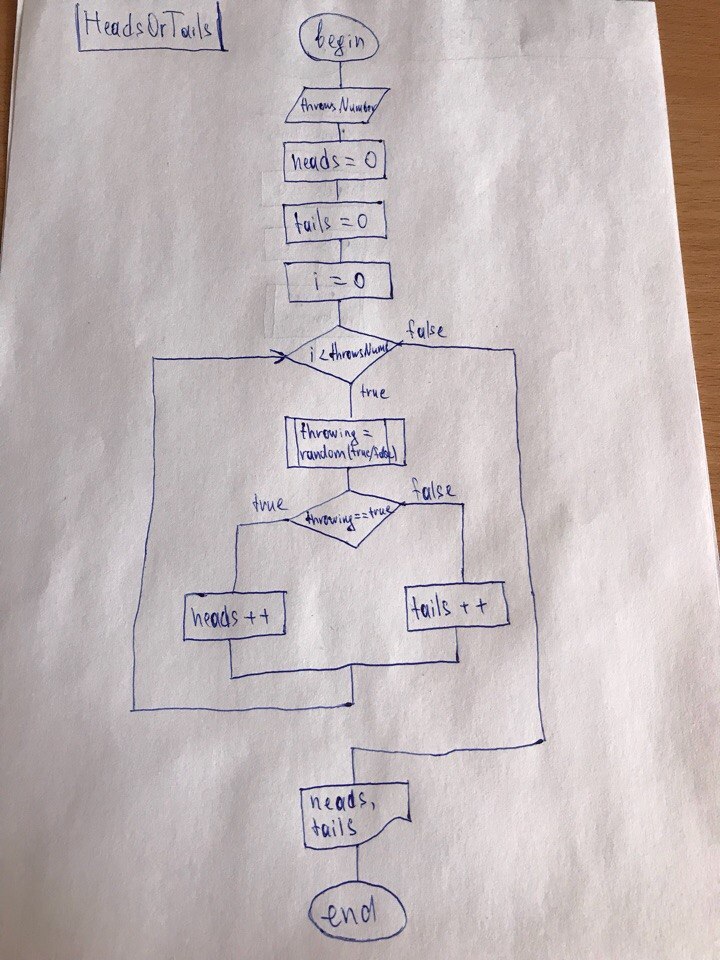 HeadsOrTails
begin
throwsNumber
heads = 0
tails = 0
i = 0
i < throwsNumb
false
true
throwing =
random(true/false)
true
throwing==true
false
heads ++
tails ++
heads,
tails
end